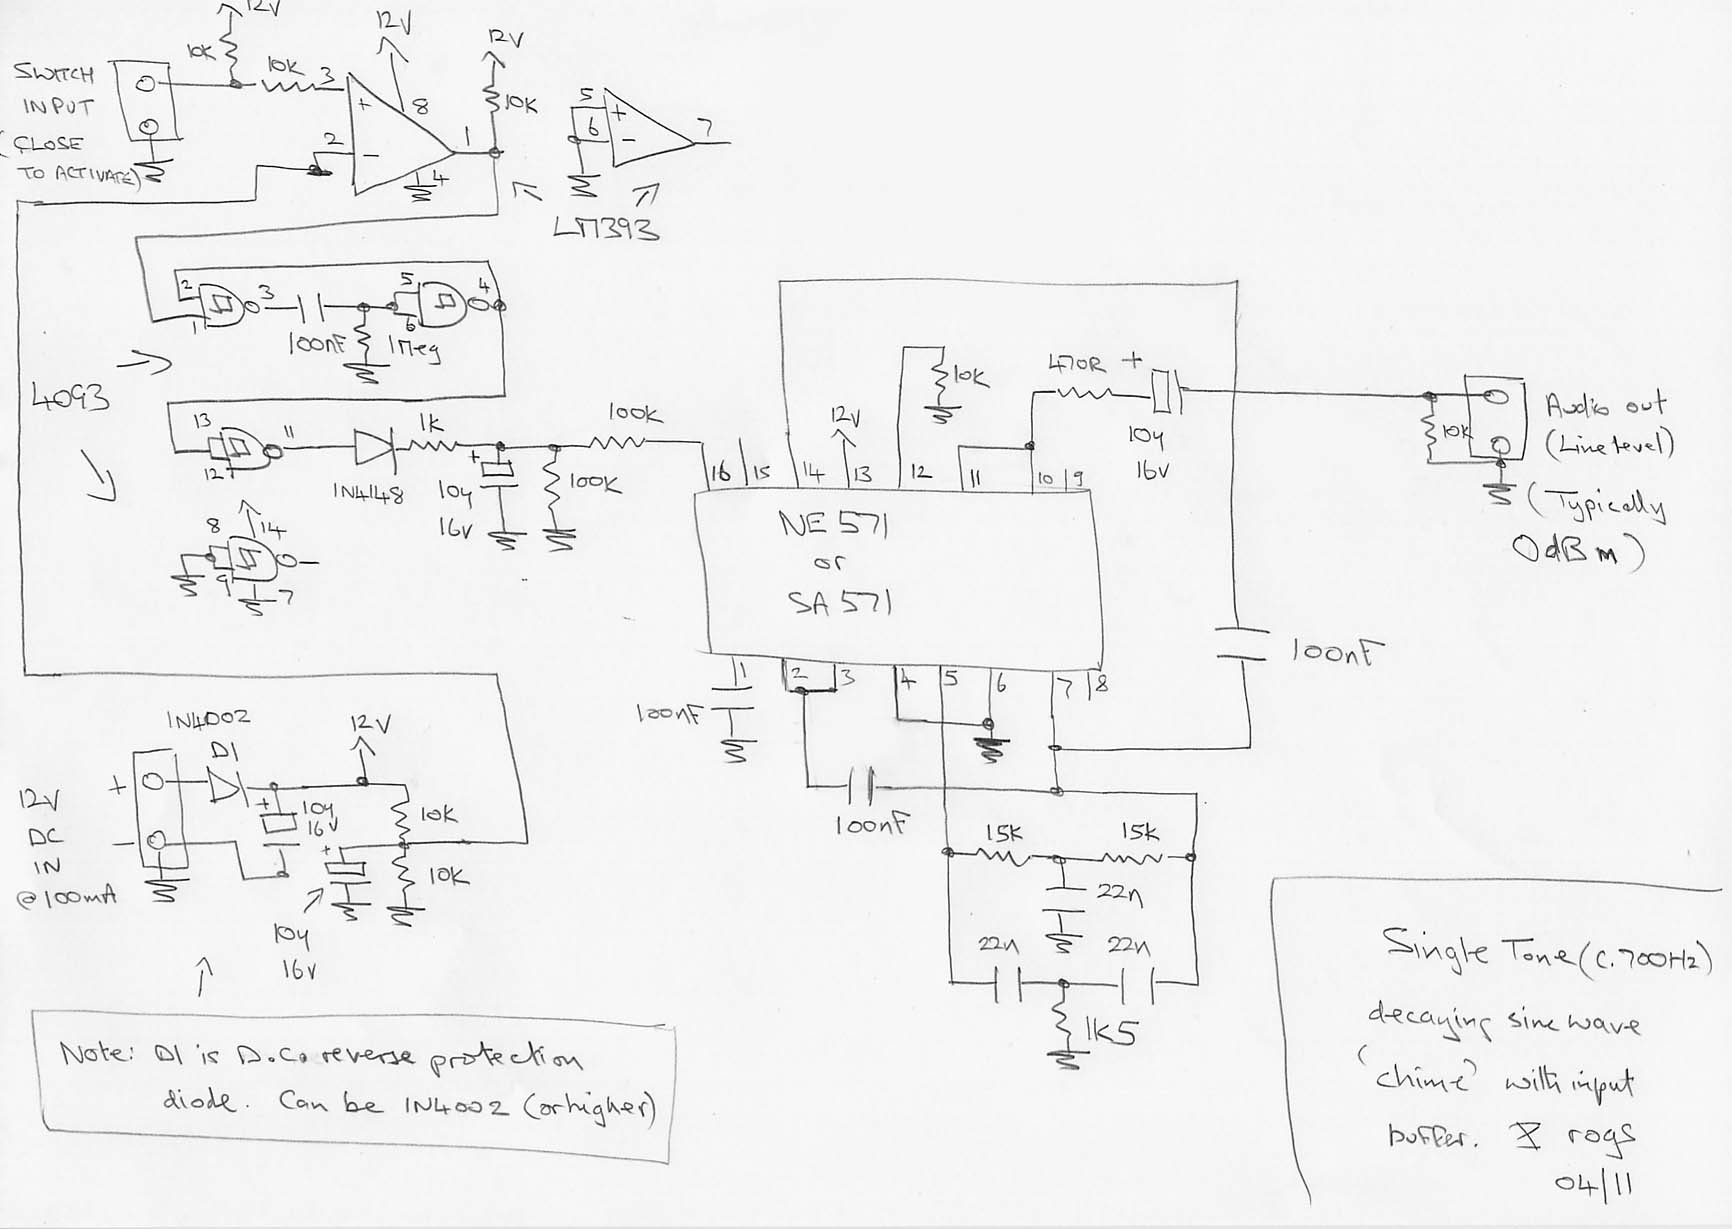 12V
10K
SWITCH
INPUT
(CLOSE
TO ACTIVATE)
10K
3
+
12V
8
2
-
4
1
12V
10K
5
+
6
-
7
LM393
2
1
3
100nF
1Meg
5
6
4
4093
13
12
11
1N4148
1K
+
10µ
16V
100K
100K
8
9
14
7
16
15
14
12V
13
12
10K
11
10
9
470R
+
10µ
16V
10K
Audio out
(Line level)
(Typically
0dBm)
NE571
or
SA571
1
2
3
4
5
6
7
8
100nF
100nF
100nF
15K
15K
22n
22n
22n
1K5
1N4002
D1
12V
12V
DC
IN
@100mA
+
-
+
10µ
16V
10K
+
10K
10µ
16V
Note: D1 is D.C. reverse protection
diode. Can be 1N4002 (or higher)
Single Tone (c.700Hz)
decaying sine wave
'chime' with input
buffer. rogs
04/11